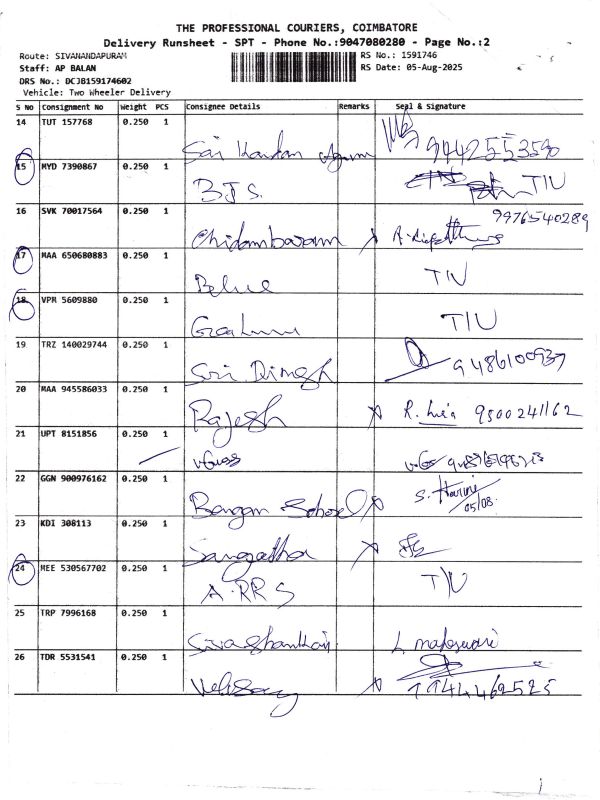 THE PROFESSIONAL COURIERS, COIMBATORE
Delivery Runsheet - SPT - Phone No.:9047080280 - Page No.:2
Route: SIVANANDAPURAM RS No.: 1591746
Staff: AP BALAN RS Date: 05-Aug-2025
DRS No.: DCJB159174602
Vehicle: Two Wheeler Delivery
S No Consignment No Weight PCS Consignee Details Remarks Seal & Signature
14 TUT 157768 0.250 1 Sai 9442553590
15 MYD 7390867 0.250 1 BJS TIU
16 SVK 70017564 0.250 1 Chidambaram 9976540289
17 MAA 650680883 0.250 1 TIU
18 VPR 5609880 0.250 1 TIU
19 TRZ 140029744 0.250 1 Sri Dinesh 9486100937
20 MAA 945586033 0.250 1 Rajesh 9500241162
21 UPT 8151856 0.250 1
22 GGN 900976162 0.250 1 School S. Harini 05/08
23 KDI 308113 0.250 1 Sangatha
24 MEE 530567702 0.250 1 A.RRS TIU
25 TRP 7996168 0.250 1 Sivashankari L. maheswari
26 TDR 5531541 0.250 1 9944462525